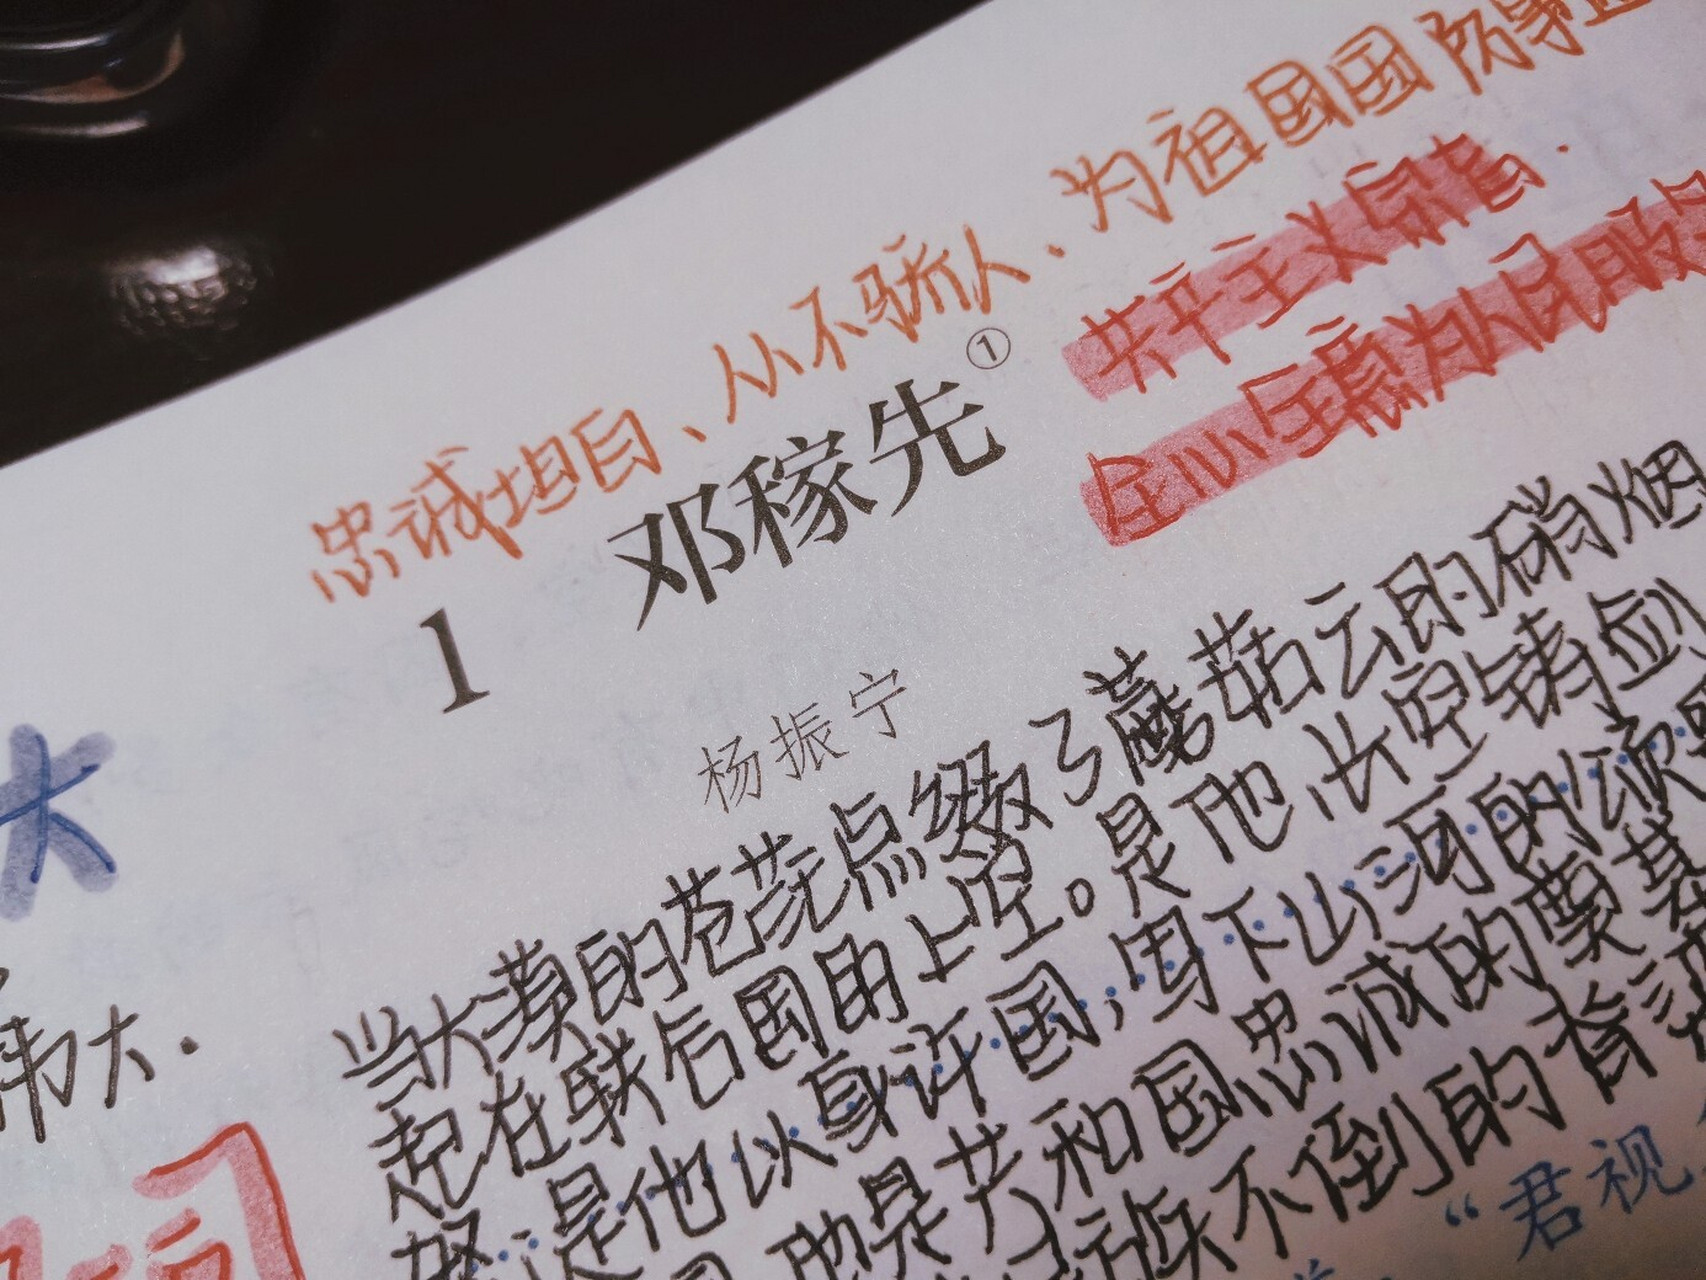 忠诚坦白、从不骄人、为祖国国防事业
共产主义宗旨.
全心全意为人民服务
①
1 邓稼先
杨振宁
大
当大漠的苍茫点缀了蘑菇云的硝烟
起在联合国的上空。是他长空铸剑
好.是他以身许国,写下山河的颂
伟大.
是共和国忠诚的奠基
族不倒的脊梁
司
“君视